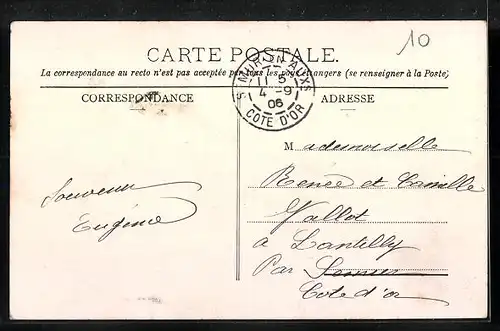 10
CARTE POSTALE.
La correspondance au recto n'est pas acceptée par tous les pays étrangers (se renseigner à la Poste)
SEMUR-EN-AUXS
11 5
4 -9
06
COTE D'OR
CORRESPONDANCE
ADRESSE
Souvenir
Eugénie
Mademoiselle
Renée et Camille
Vallot
à Lantilly
Par Semur
Cote d'or